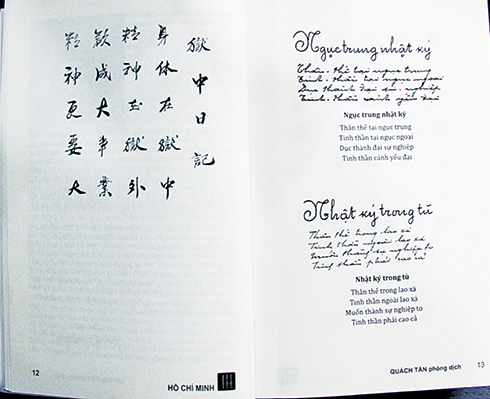 獄中日記
身体在獄中
精神在獄外
欲成大事業
精神更要大
12
HỒ CHÍ MINH
Ngục trung nhật ký
Thân thể tại ngục trung
Tinh thần tại ngục ngoại
Dục thành đại sự nghiệp
Tinh thần cánh yếu đại
Ngục trung nhật ký
Thân thể tại ngục trung
Tinh thần tại ngục ngoại
Dục thành đại sự nghiệp
Tinh thần cánh yếu đại
Nhật ký trong tù
Thân thể trong lao xá
Tinh thần ngoài lao xá
Muốn thành sự nghiệp to
Tinh thần phải cao cả
Nhật ký trong tù
Thân thể trong lao xá
Tinh thần ngoài lao xá
Muốn thành sự nghiệp to
Tinh thần phải cao cả
QUÁCH TẤN phỏng dịch
13